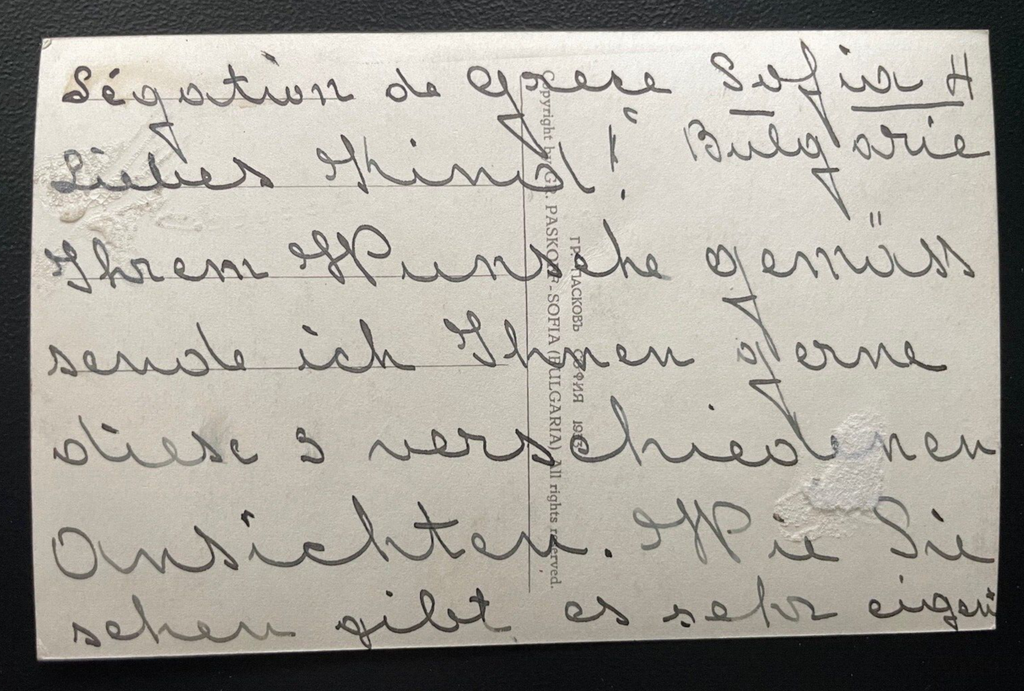 Légation de Grece Sofia 4
Bulgarie
Liebes Kind!
Ihrem Wunsche gemäss
sende ich Ihnen gerne
diese 3 verschiedenen
Ansichten. Wie Sie
sehen gibt es sehr eigen
Copyright by GR. PASKOFF - SOFIA (BULGARIA) All rights reserved.
ГР. ПАСКОВЪ СОФИЯ